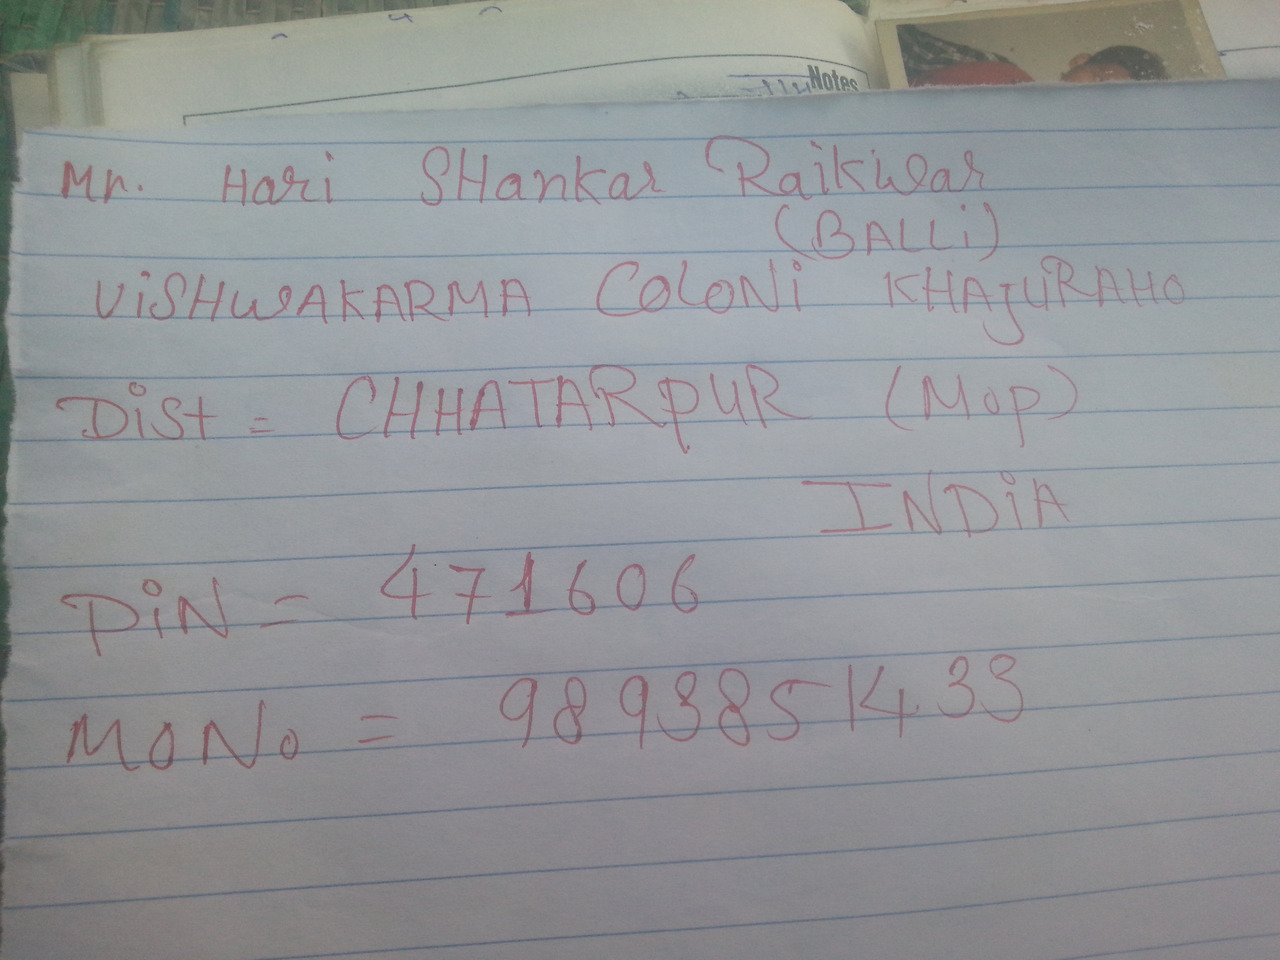 Notes
Mr. Hari SHankar Raikwar
(BALLi)
ViSHWAKARMA COLONi KHAJURAHO
Dist = CHHATARpUR (Mop)
INDiA
PiN = 471606
MONo = 9893851433